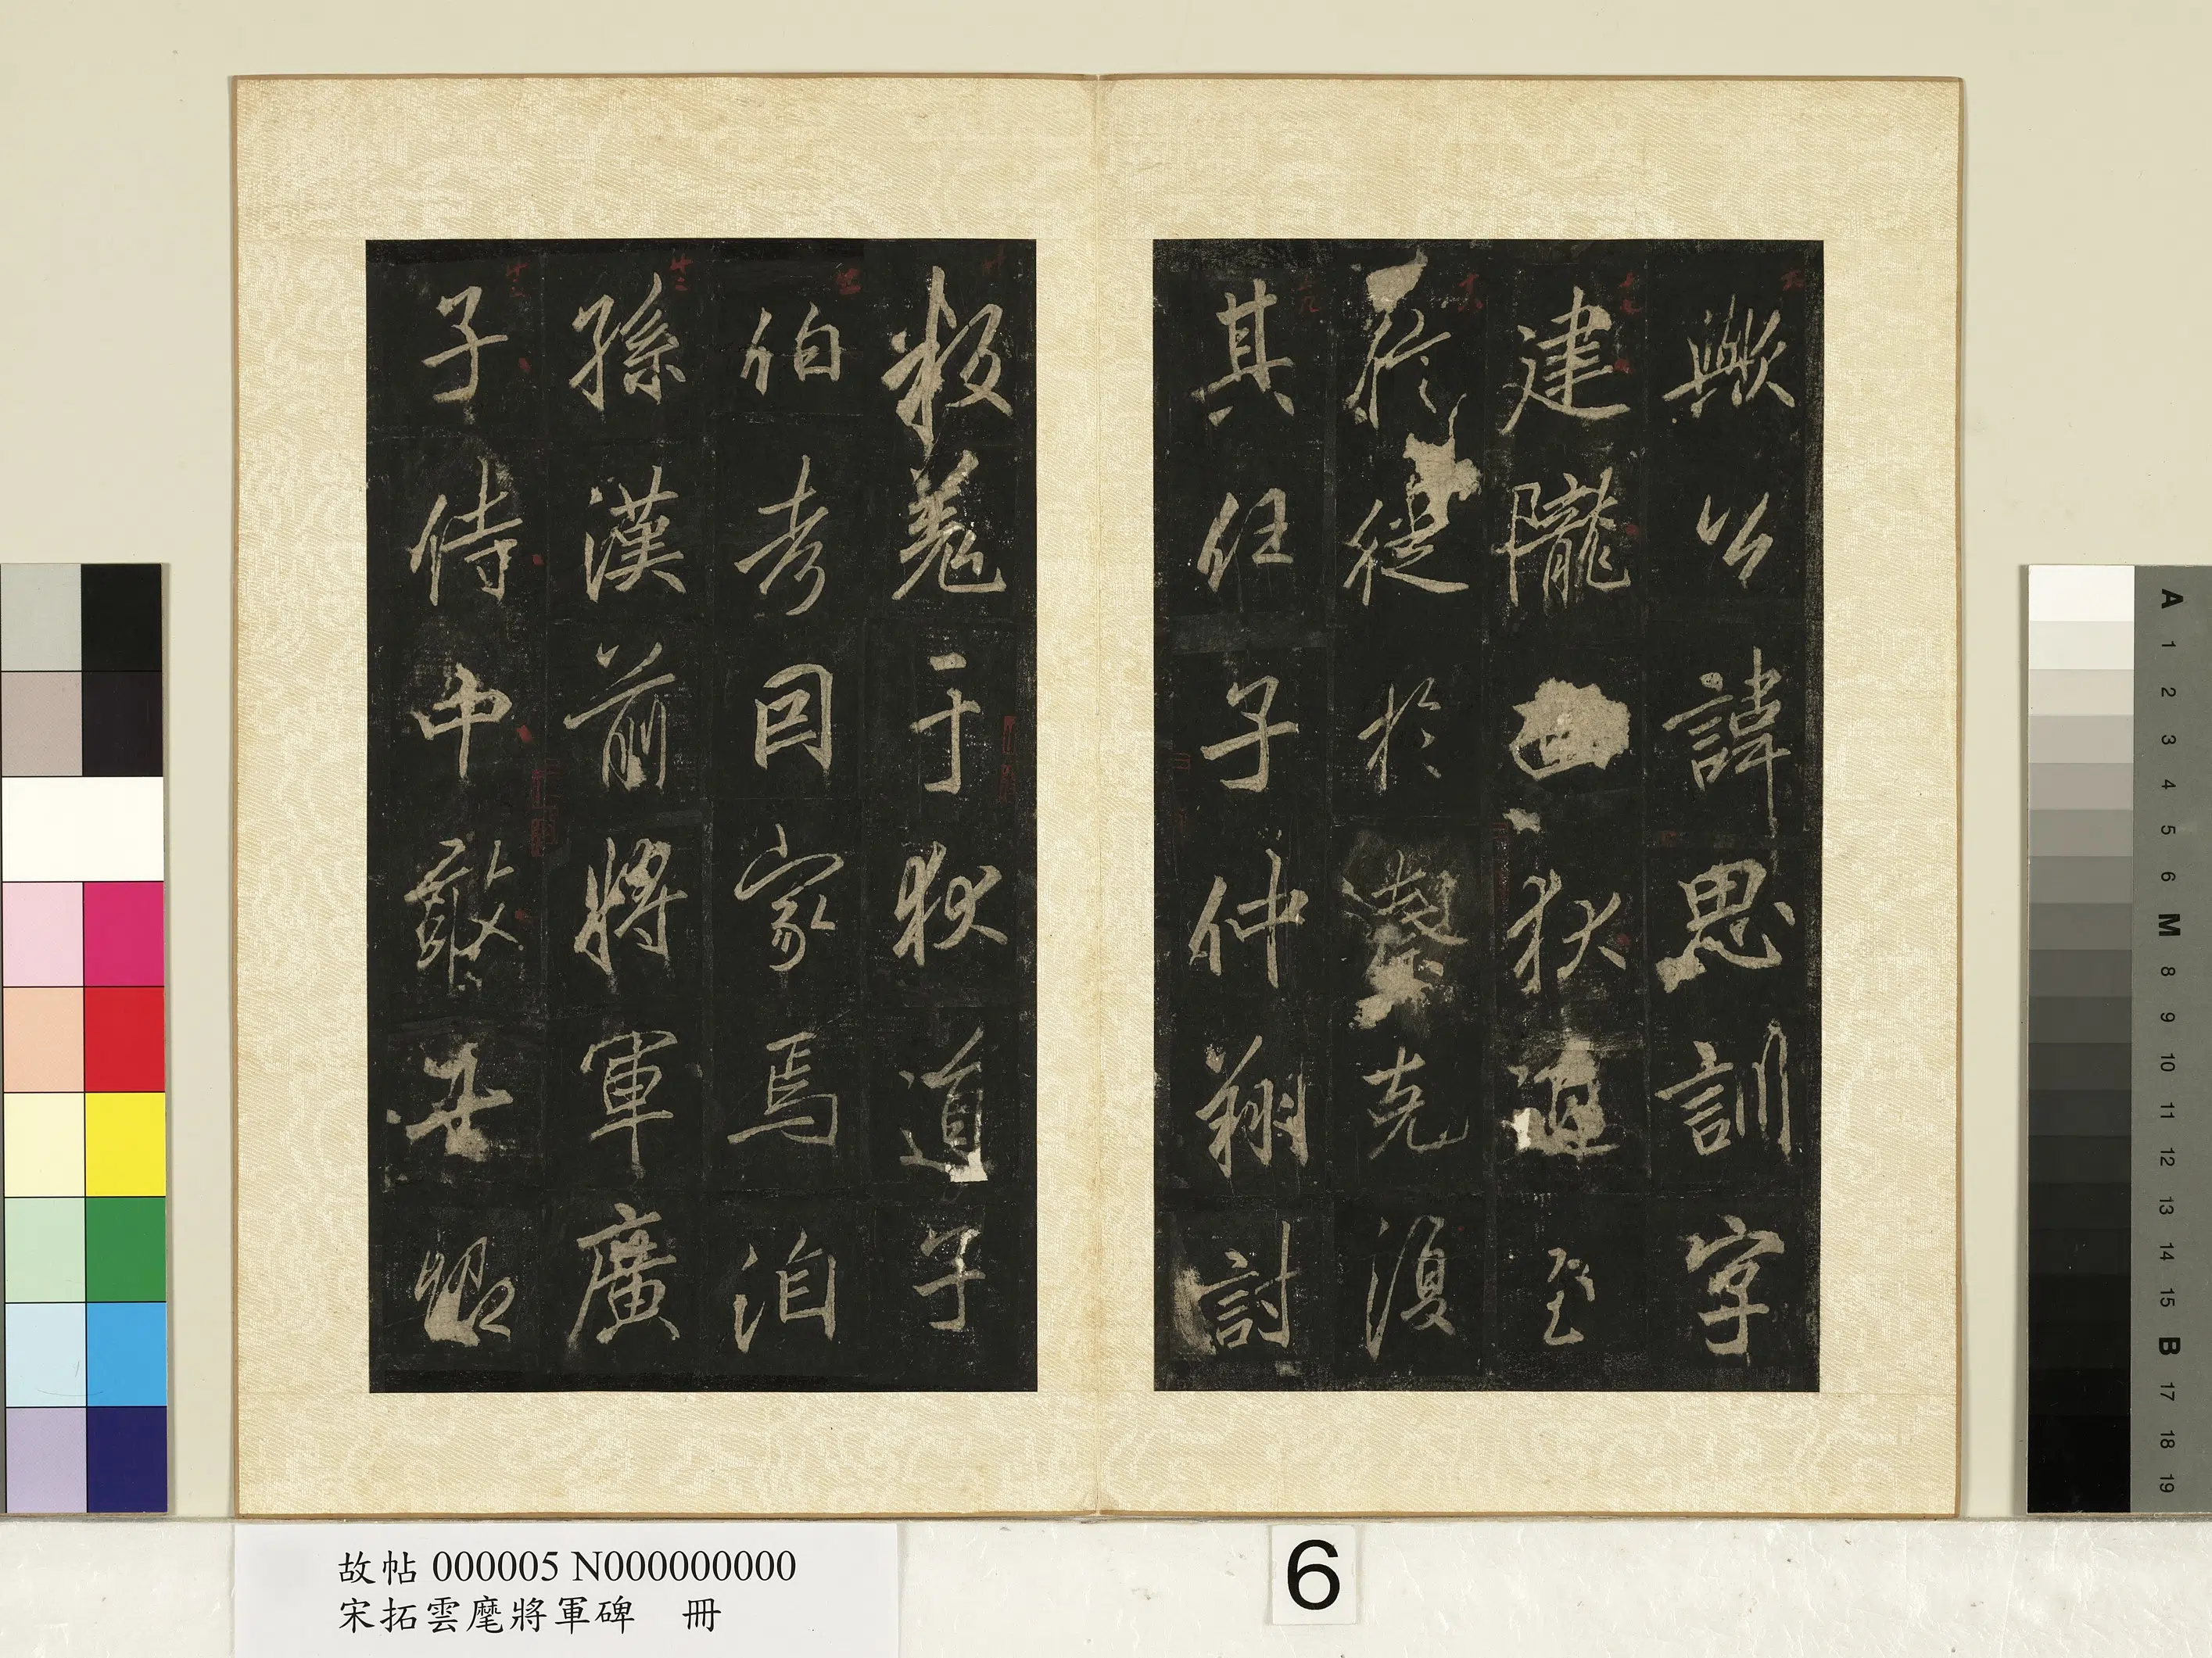 歟公諱思訓字
建隴西狄道至
從於克復
其任子仲翔討
叛羌于狄道子
伯考因家焉洎
孫漢前將軍廣
子侍中敢世昭
故帖 000005 N000000000
宋拓雲麾將軍碑 冊
6
A 1 2 3 4 5 6 M 8 9 10 11 12 13 14 15 B 17 18 19